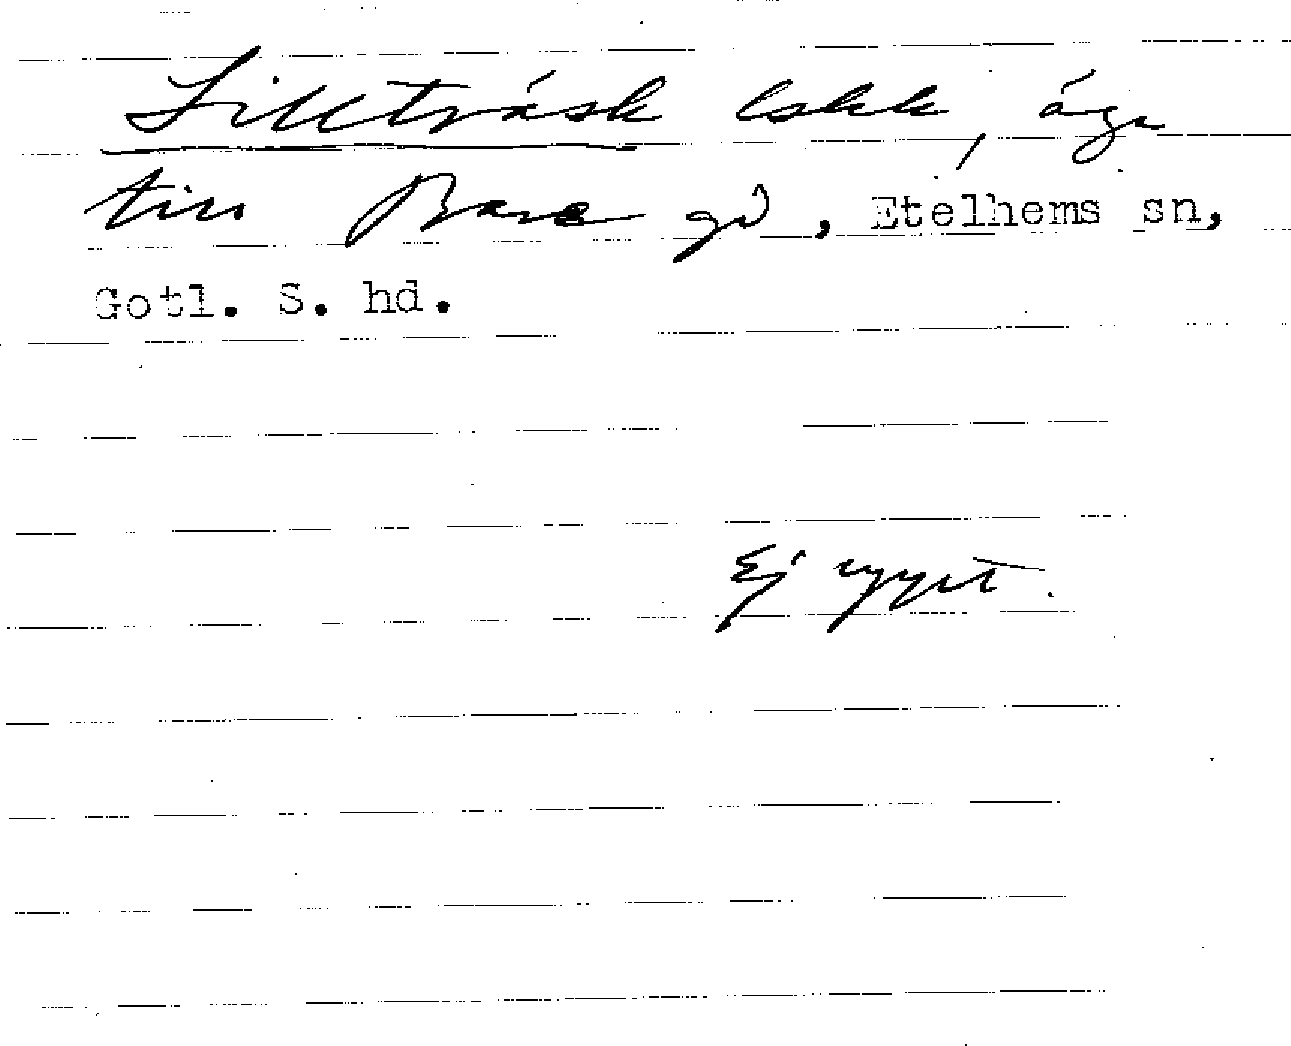 Lillträsk lskk, äga
till Bare gd, Etelhems sn,
Gotl. S. hd.
Ej uppt.